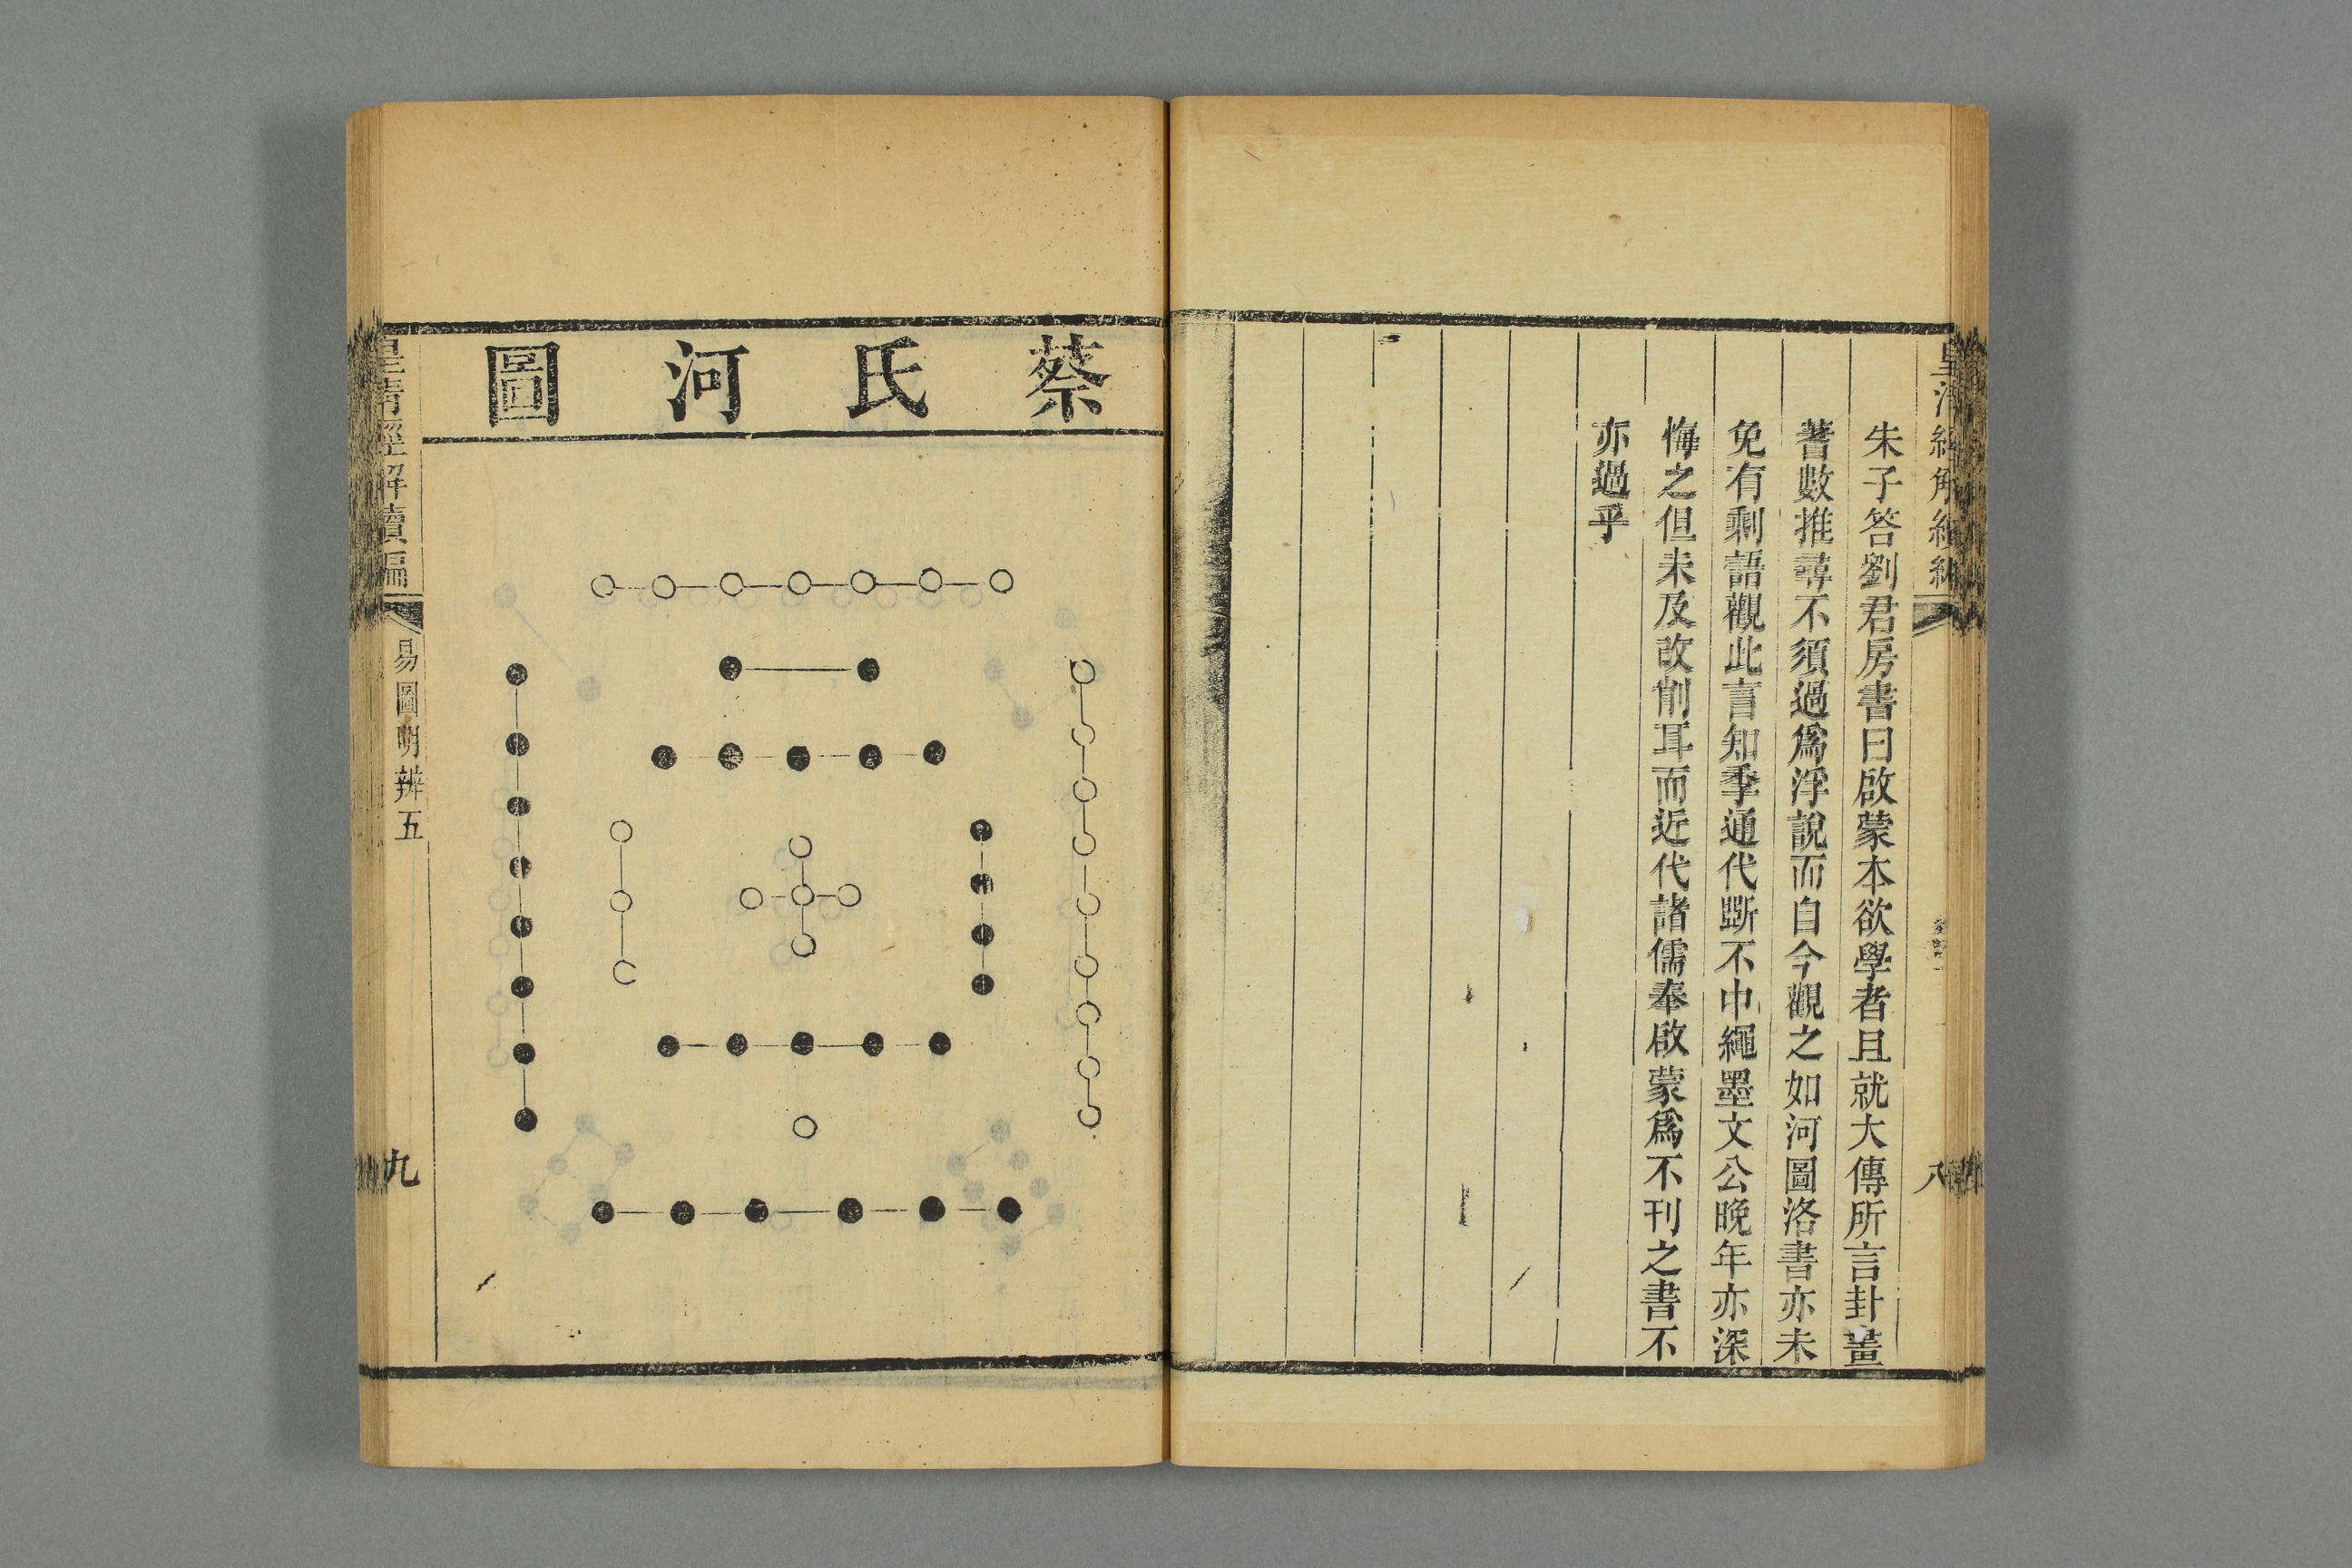 皇清經解續編
八
朱子答劉君房書曰啟蒙本欲學者且就大傳所言卦畫
蓍數推尋不須過為浮說而自今觀之如河圖洛書亦未
免有剩語觀此言知季通代斲不中繩墨文公晚年亦深
悔之但未及改削耳而近代諸儒奉啟蒙爲不刊之書不
亦過乎
蔡氏河圖
皇清經解續編
易圖明辨五
九